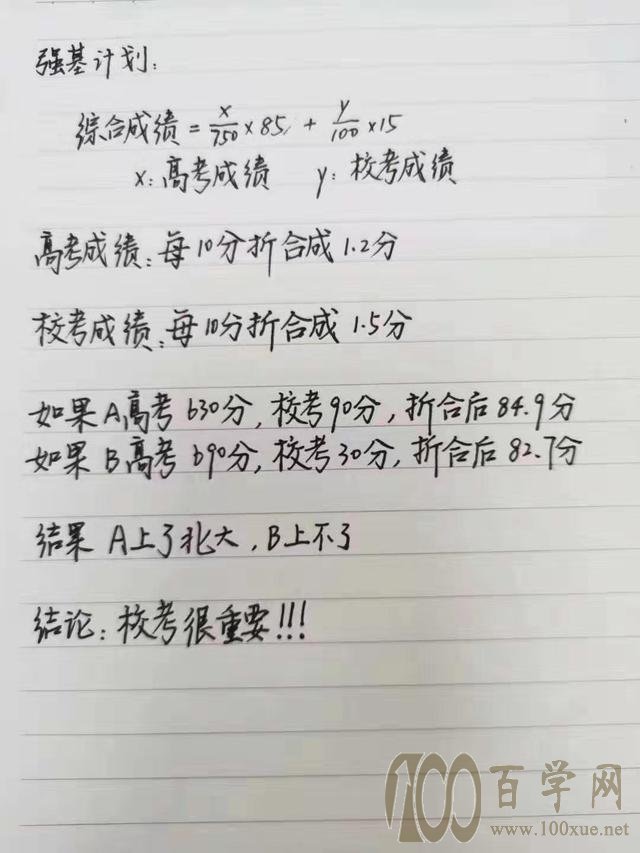 强基计划:
综合成绩 = x/750 ×85 + y/100 ×15
x: 高考成绩 y: 校考成绩
高考成绩: 每10分折合成1.2分
校考成绩: 每10分折合成 1.5分
如果A高考630分, 校考90分, 折合后84.9分
如果B高考690分, 校考30分, 折合后82.7分
结果 A上了北大, B上不了
结论: 校考很重要!!!
100百学网
www.100xue.net